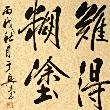 難得
糊塗
丙戌秋月于